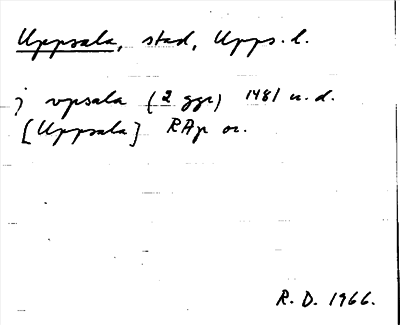 Uppsala, stad, Upps. l.
j vpsala (2 ggr) 1481 u. d.
[Uppsala] RAp or.
R. D. 1966.